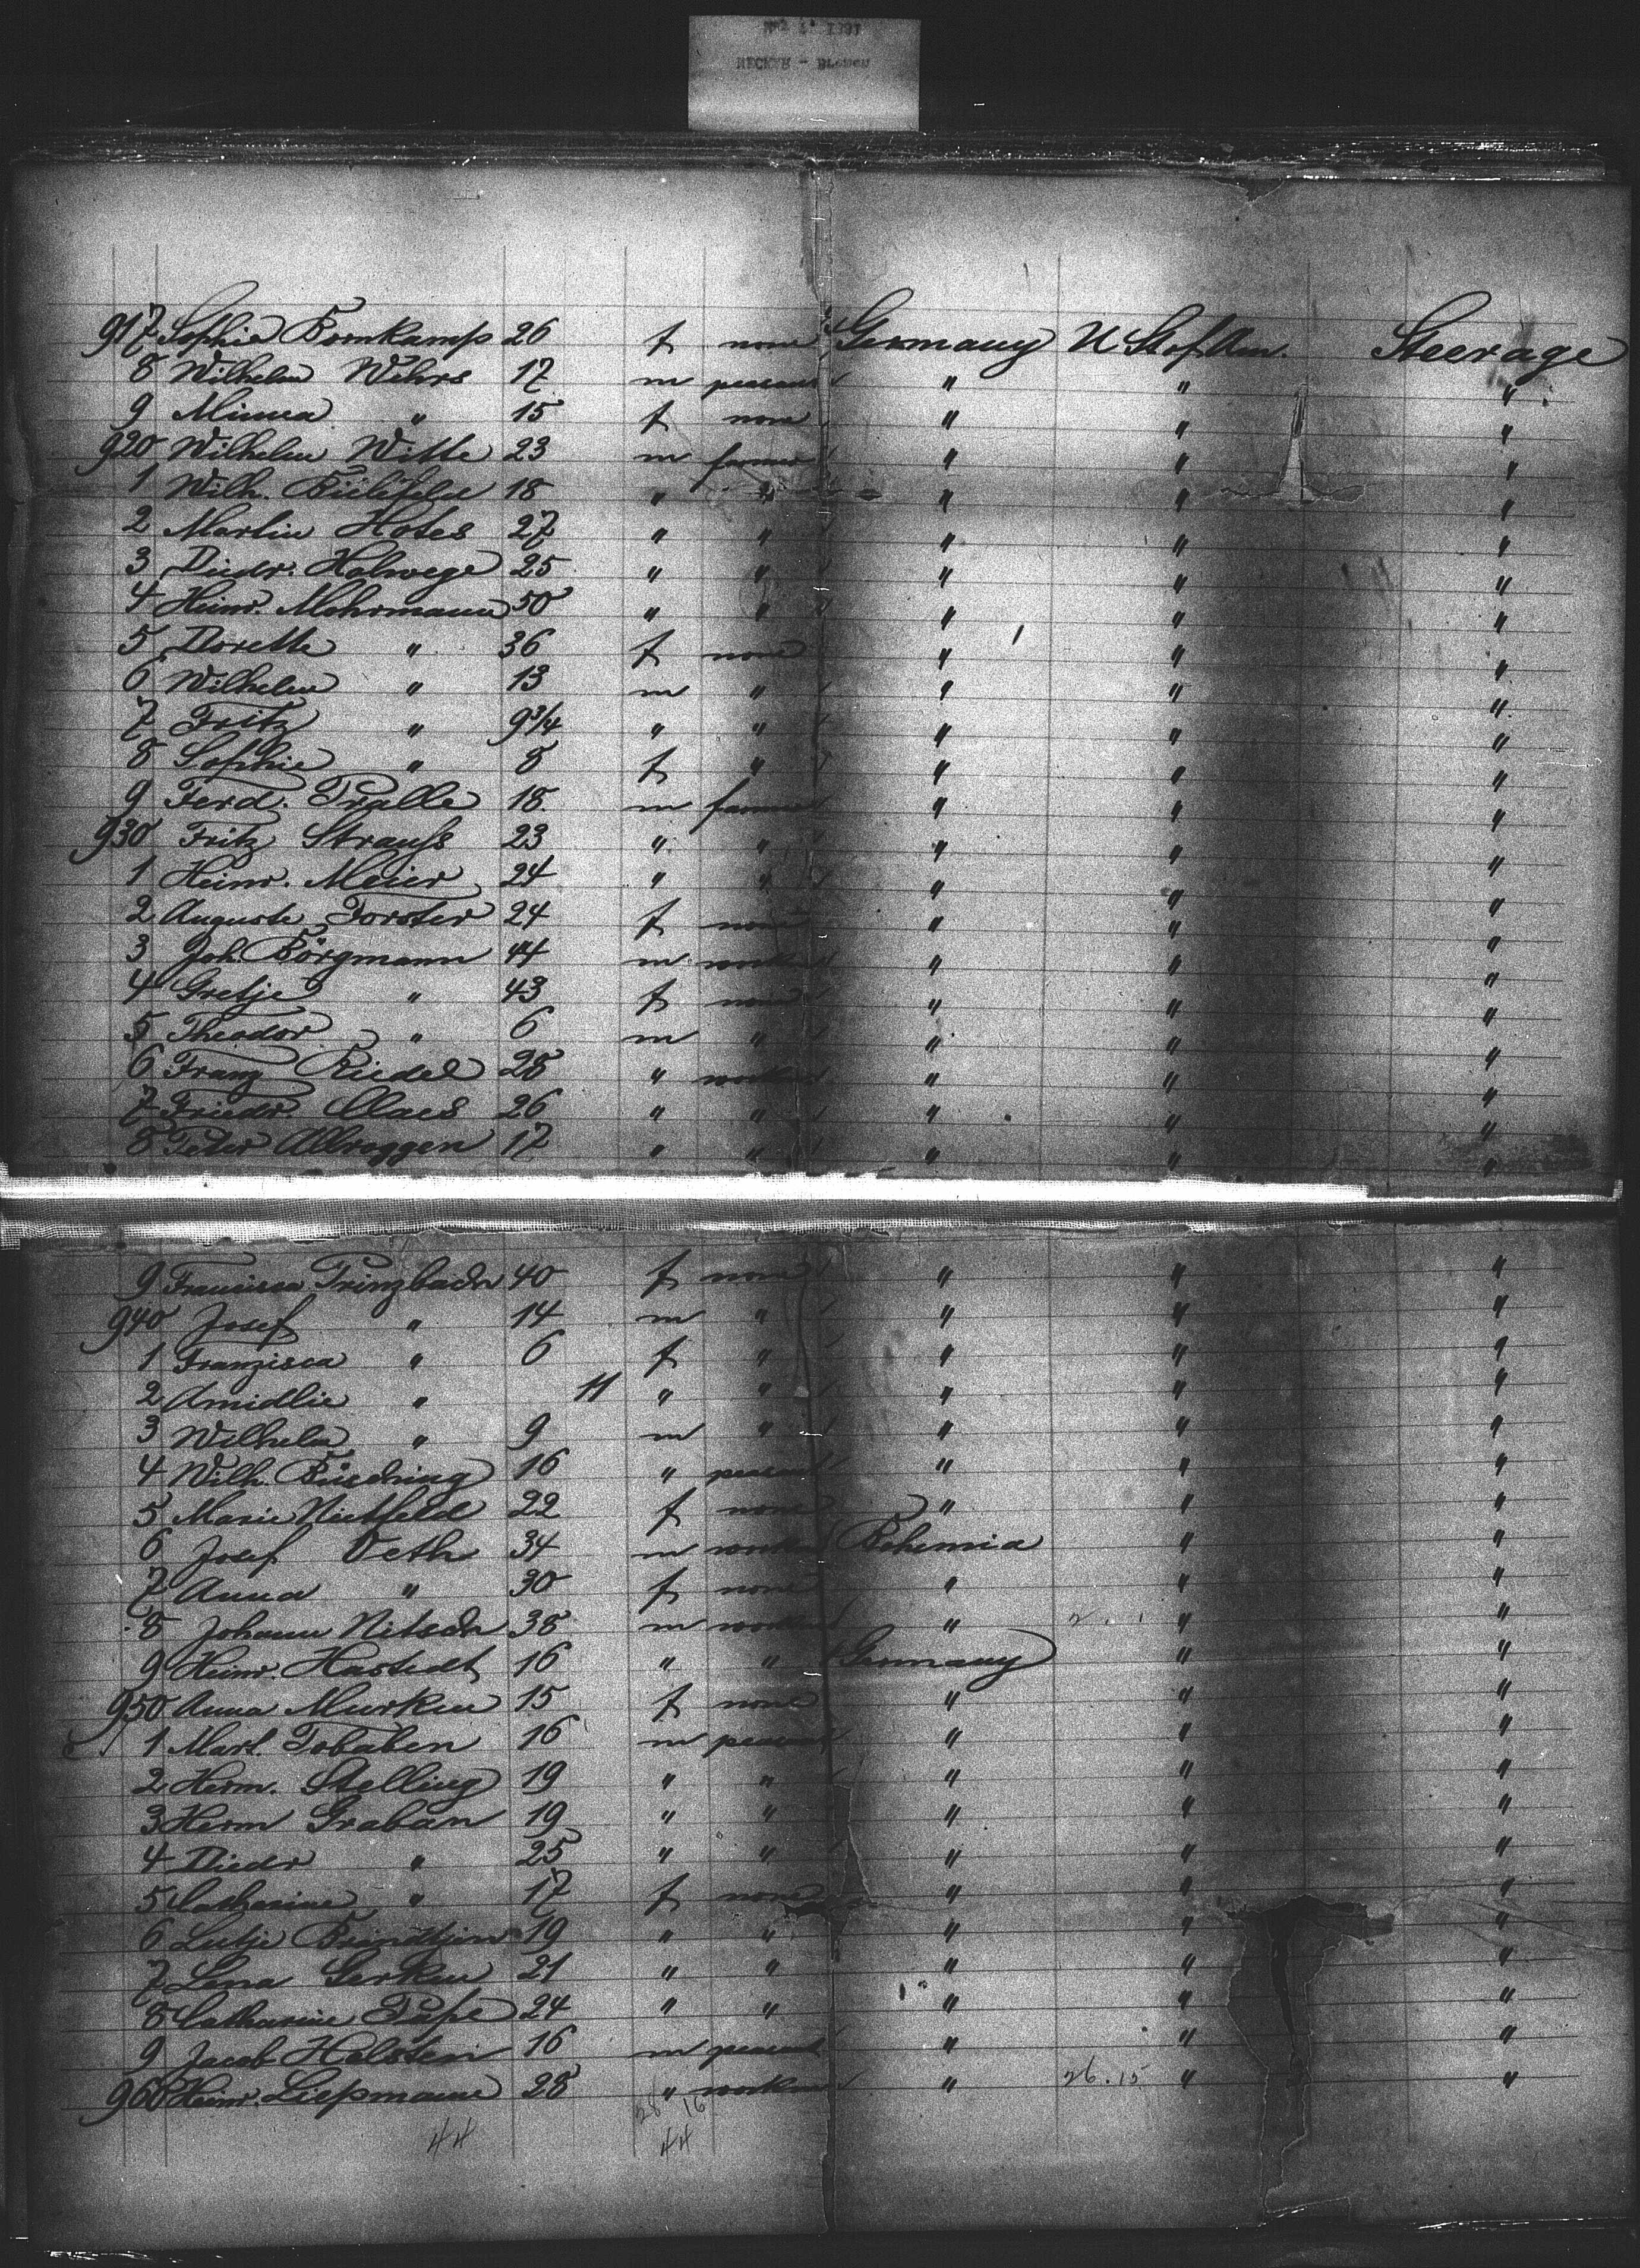 May 2, 1881
NECKAR - Bremen
917 Sophie Bornkamp 26 f none Germany U St of Am. Steerage
8 Wilhelm Wehrs 17 m peasant " " "
9 Minna " 15 f none " " "
920 Wilhelm Witte 23 m farmer " " "
1 Wilh. Bielefeld 18 " " " " "
2 Martin Hotes 27 " " " " "
3 Diedr. Holwege 25 " " " " "
4 Heinr. Mohrmann 50 " " " " "
5 Dorette " 36 f none " " "
6 Wilhelm " 13 m " " " "
7 Fritz " 9 3/4 " " " " "
8 Sophie " 8 f " " " "
9 Ferd. Pralle 18 m farmer " " "
930 Fritz Strauss 23 " " " " "
1 Heinr. Meier 24 " " " " "
2 Auguste Forster 24 f none " " "
3 Joh. Börgmann 44 m workm " " "
4 Gretje " 43 f none " " "
5 Theodor " 6 m " " " "
6 Franz Riedel 28 " workm " " "
7 Friedr. Claes 26 " " " " "
8 Peter Albroggen 17 " " " " "
9 Francisca Prinzbach 40 f none " " "
940 Josef " 14 m " " " "
1 Franzisca " 6 f " " " "
2 Amidlie " 11 " " " " "
3 Wilhelm " 9 m " " " "
4 Wilh. Büsching 16 " peasant " " "
5 Marie Nietfeld 22 f none " " "
6 Josef Veth 34 m workm Bohemia " "
7 Anna " 30 f none " " "
8 Johann Nitsch 38 m workm " " "
9 Heinr. Hastedt 16 " " Germany " "
950 Anna Murken 15 f none " " "
1 Mart. Tobaben 16 m peasant " " "
2 Herm. Stelling 19 " " " " "
3 Herm Graban 19 " " " " "
4 Diedr " 25 " " " " "
5 Catharine " 17 f none " " "
6 Lutje 19 " " " " "
7 Lena Gerken 21 " " " " "
8 Catharine Pape 24 " " " " "
9 Jacob Holsten 16 m peasant " " "
960 Heinr. Liepmann 28 " workman " 26.15 " "
28 16
44 44